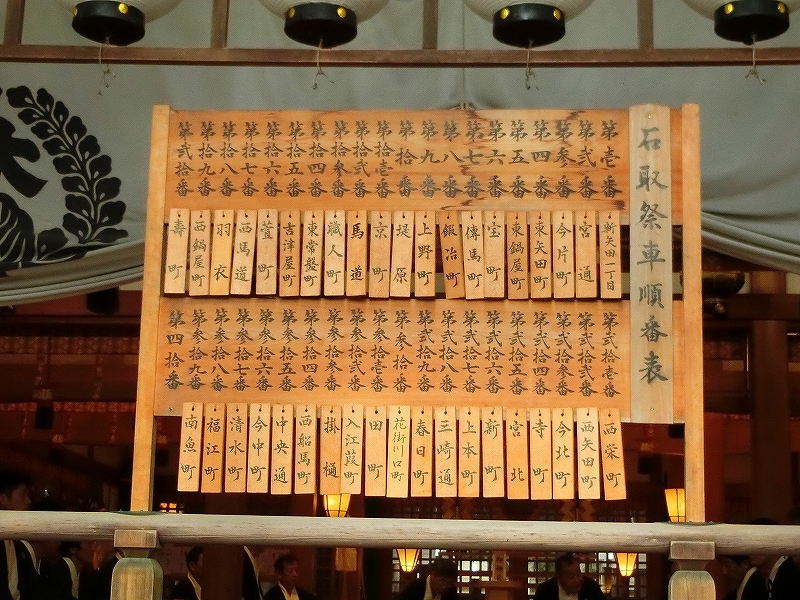 石取祭車順番表
第壱番
第弐番
第参番
第四番
第五番
第六番
第七番
第八番
第九番
第拾番
第拾壱番
第拾弐番
第拾参番
第拾四番
第拾五番
第拾六番
第拾七番
第拾八番
第拾九番
第弐拾番
新矢田一丁目
宮通
今片町
東矢田町
東鍋屋町
宝町
傳馬町
鍛冶町
上野町
堤原
京町
馬道
職人町
東常盤町
吉津屋町
萱町
西馬道
羽衣
西鍋町
壽町
第弐拾壱番
第弐拾弐番
第弐拾参番
第弐拾四番
第弐拾五番
第弐拾六番
第弐拾七番
第弐拾八番
第弐拾九番
第参拾番
第参拾壱番
第参拾弐番
第参拾参番
第参拾四番
第参拾五番
第参拾六番
第参拾七番
第参拾八番
第参拾九番
第四拾番
西栄町
西矢田町
今北町
寺町
宮北
新町
上本町
三崎通
春日町
花街川口町
田町
入江葭町
掛樋
西船馬町
中央通
今中町
清水町
福江町
南魚町